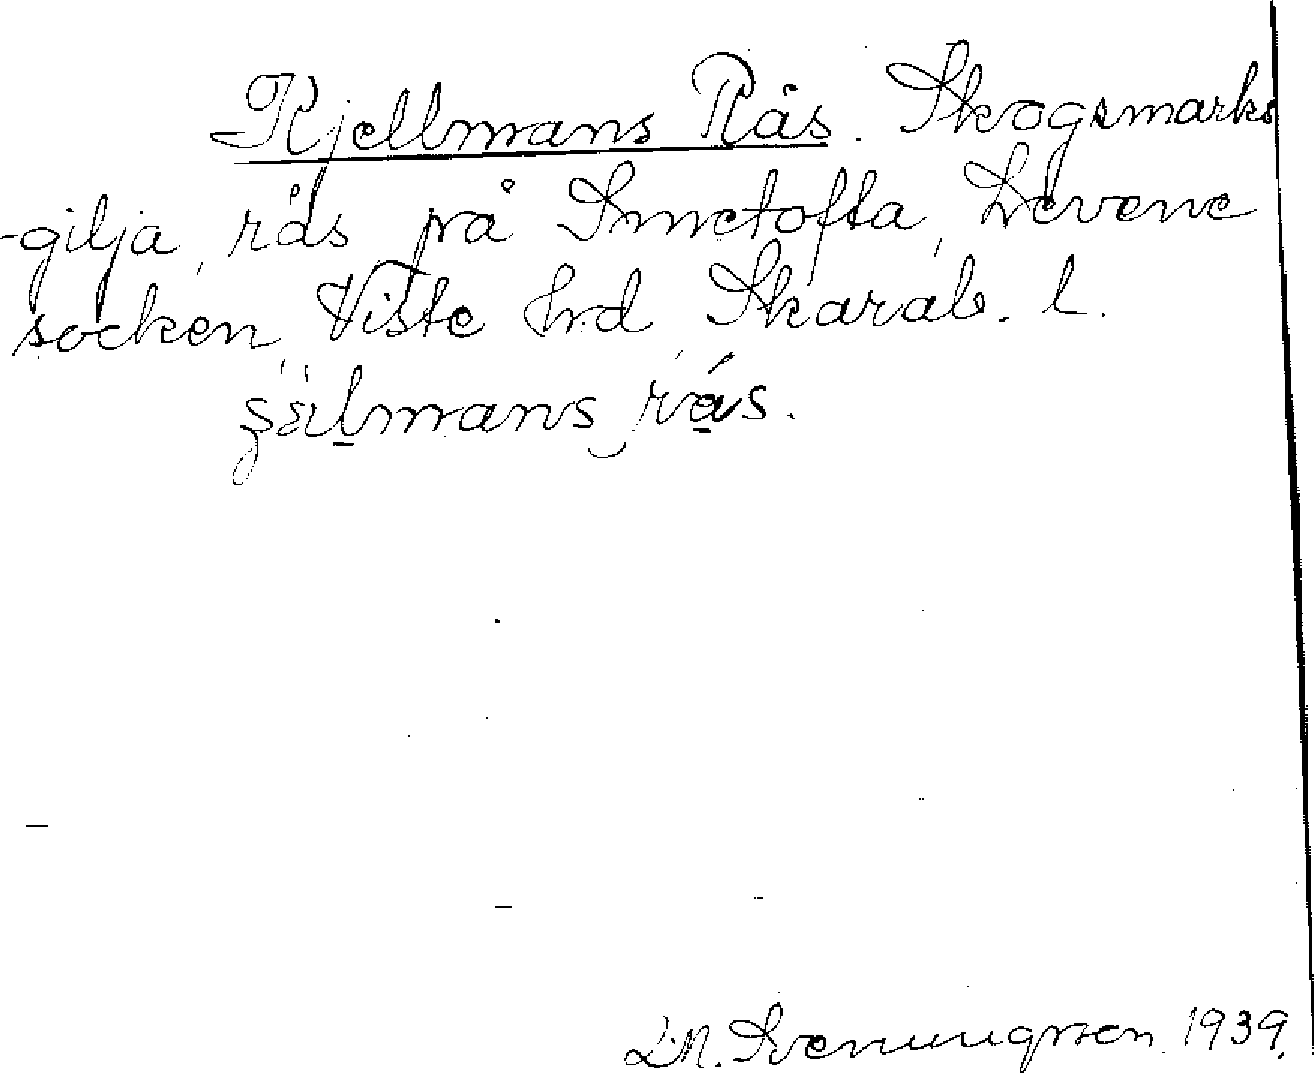 Kjellmans Rås. Skogsmarks
-gilja, rås på Smetofta, Levene
socken, Viste hrd, Skarab. l.
rås.
Svenungsson 1939.